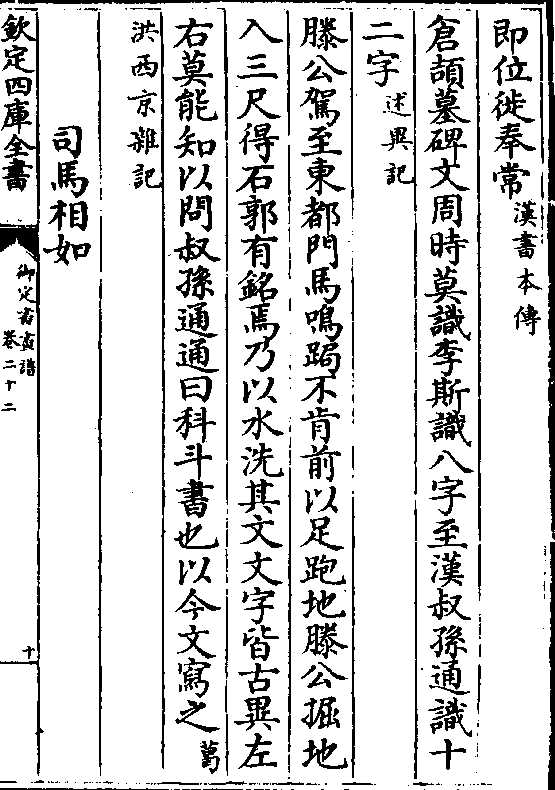 即位徙奉常漢書本傳
倉頡墓碑文周時莫識李斯識八字至漢叔孫通識十
二字述異記
滕公駕至東都門馬鳴跼不肯前以足跑地滕公掘地
入三尺得石郭有銘焉乃以水洗其文文字皆古異左
右莫能知以問叔孫通通曰科斗書也以今文寫之葛
洪西京雜記
司馬相如
欽定四庫全書
御定書畫譜
卷二十二
十